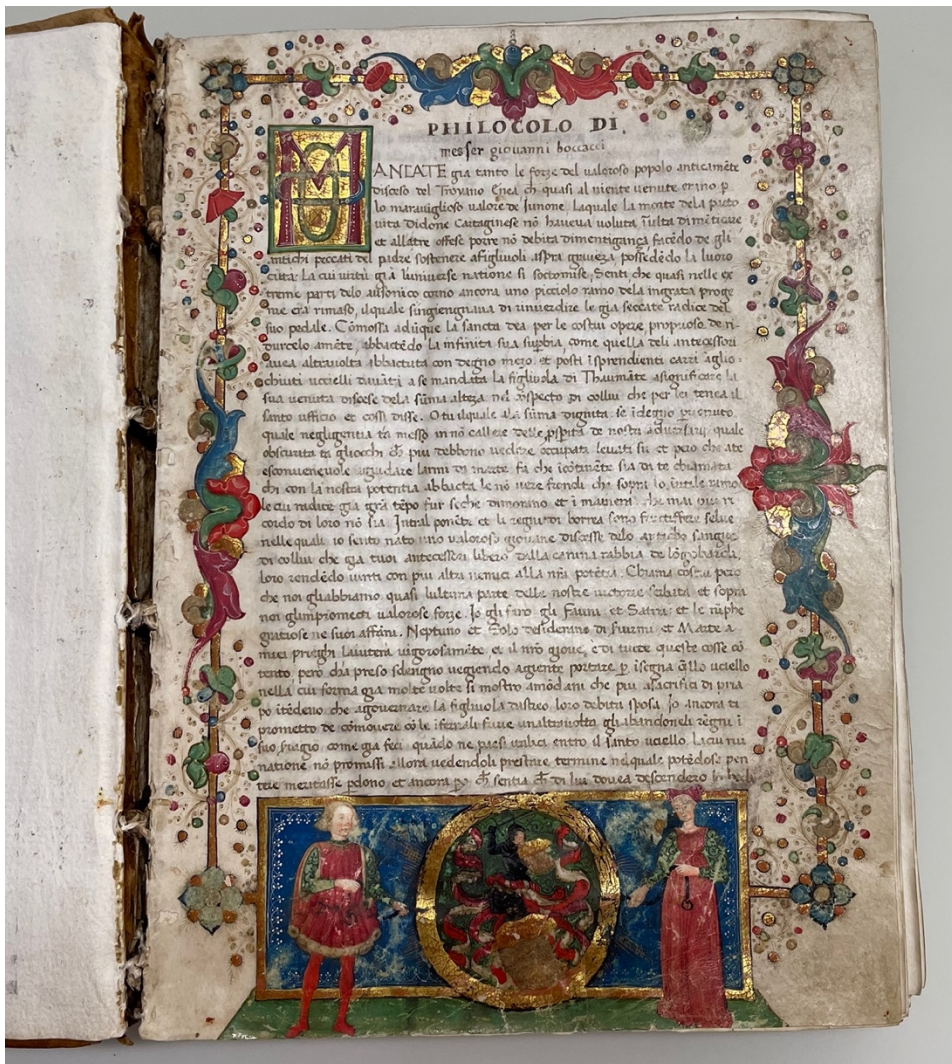 PHILOCOLO DI.
messer giovanni boccacci
MANCATE gia tanto le forze del valeroso popolo anticamēte
disceso del Troyano Enea ch quasi al niente venute erino p
lo maraviglioso valore de Iunone. Laquale la morte dela patto
vita didone Cartaginese nō haueva voluta iulta dimēticare
et allaltre offese porre nō debita dimentigança facēdo de gli
antichi peccati del padre sostenere afigliuoli aspra graueza possedēdo la luoro
cita. La cui virtu gia luniuerse natione si soctomise. Senti che quasi nelle ex
treme parti delo ausonico corno ancora uno picciolo ramo dela ingrata proge
nie era rimaso, ilquale singiengnaua di rinverdire le gia seccate radice del
suo pedale. Cōmossa adūque la sancta dea per le costui opere propuoso de ri
durcelo amēte, abbactēdo la infinita sua supbia, come quella deli antecessori
auea altrauolta abbactuta con degno mezo. et posti isprendienti carri agl
ochiuti uccielli dauāti a se mandata la figliuola di Thaumāte asignificare la
sua venuta discese dela sūma alteza nel cospecto di colluj che per lei tenea il
santo ufficio et cossi disse. O tu ilquale ala sūma dignita se idegno puenuto
quale negligentia ta messo in nō callere delle pspita de nostri aduersarij quale
obscurita ta gliocchi ch piu debbono vedere occupata leuati su et pero che ate
esconueneuole guidare larmi di marte fa che icōtinēte sia di te chiamata
chi con la nostra potentia abbacta le nō vere frondi che sopra lo inutile ramo
le cui radice gia grā tēpo fur seche dimorano et i maniera che mai
cordo di loro nō sia. Intral ponēte et li regni di borrea sono fructiffere selue
nellequali io sento nato uno valoroso giouane discesse delo anticho sangue
di colluj che gia tuoi antecessori libero dalla canina rabbia de lōgobardi,
loro rendēdo uinti con piu altri nemici alla nr̄a potētia. Chiama costui pero
che noi gliabbiamo quasi lultima parte delle nostre uictorie serbata et sopra
noi glimpromecti valorose forze. Io gli faro gli Fauni et Satiri et le nīphe
gratiose ne suoi affāni. Neptuno et Eolo desiderano di seruirni et Marte a
miei prieghi laiutera vigorosamēte et il nr̄o gioue, e di tucte queste cosse cō
tento pero cha preso sdengno vegiendo agiente portare p isegna q̄llo uciello
nella cui forma gia molte volte si mostro amōdani che piu asacrifici di pria
po itēdeno che agouernare la figliuola dastreo loro debita sposa. Io ancora ti
prometto de cōmouere cō le ifernali furie unaltrauolta gli abandoneli regni i
suo suagio come gia feci quādo ne paesi italici entro il santo uciello. La cui
natione nō promassi allora vedendoli prestare termine nelquale potēdose pen
tere meritasse pdono et ancora po ch sentia ch di lui douea descendere